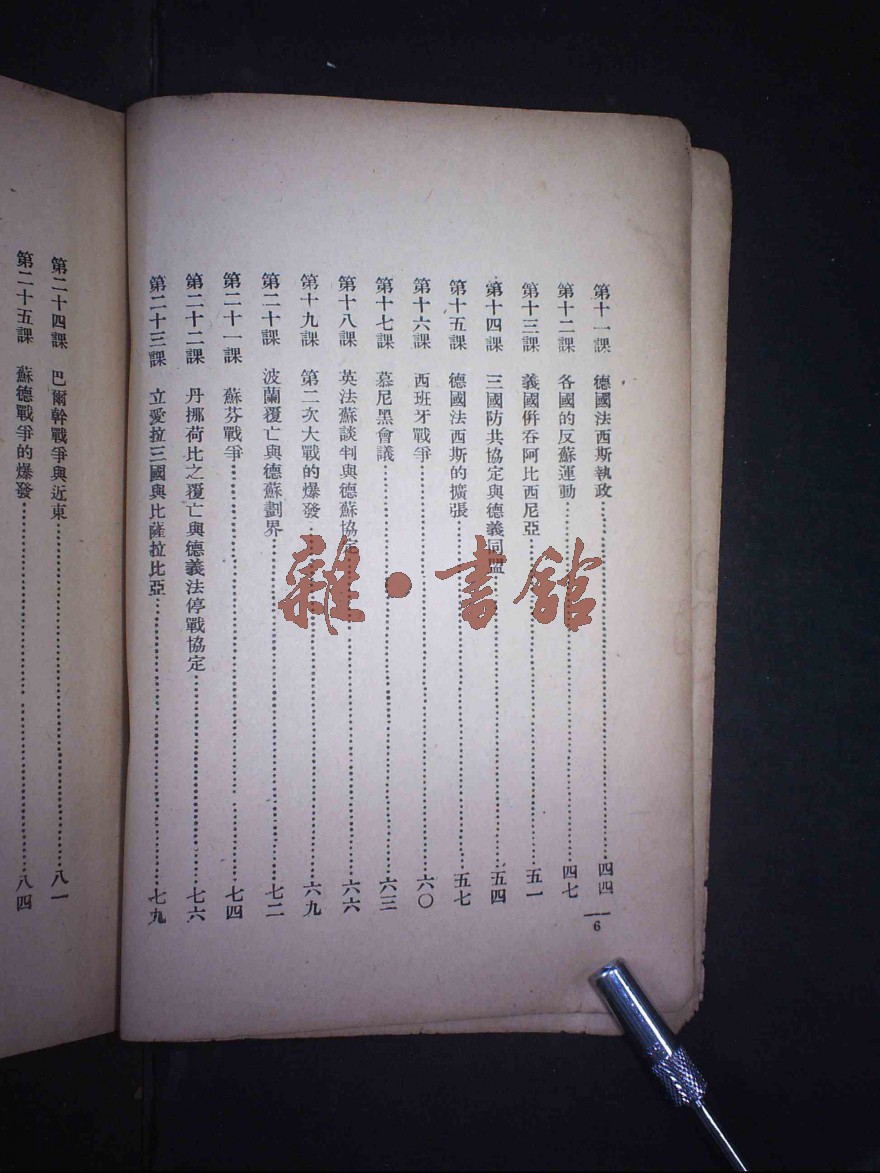 第十一課 德國法西斯執政……四四
第十二課 各國的反蘇運動……四七
第十三課 義國併吞阿比西尼亞……五一
第十四課 三國防共協定與德義同盟……五四
第十五課 德國法西斯的擴張……五七
第十六課 西班牙戰爭……六〇
第十七課 慕尼黑會議……六三
第十八課 英法蘇談判與德蘇協定……六六
第十九課 第二次大戰的爆發……六九
第二十課 波蘭覆亡與德蘇劃界……七二
第二十一課 蘇芬戰爭……七四
第二十二課 丹挪荷比之覆亡與德義法停戰協定……七六
第二十三課 立愛拉三國與比薩拉比亞……七九
6
第二十四課 巴爾幹戰爭與近東……八一
第二十五課 蘇德戰爭的爆發……八四
雜·書館